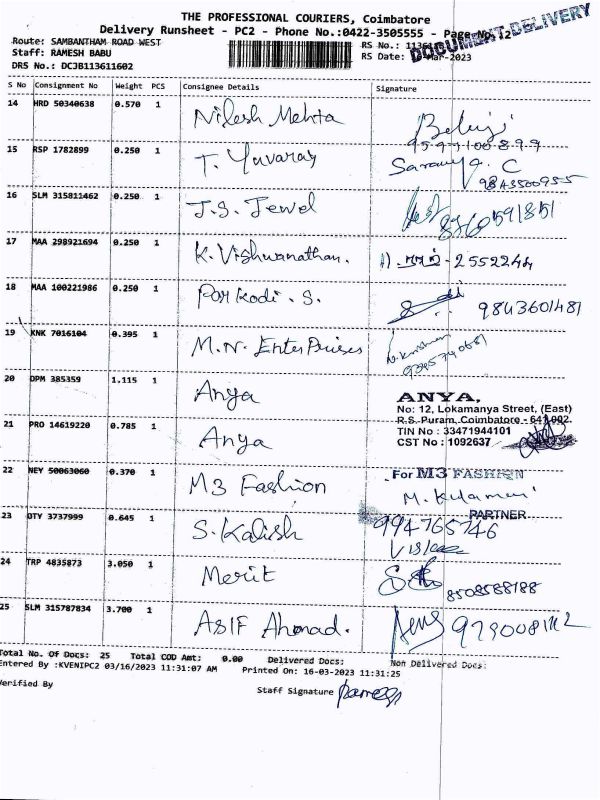 THE PROFESSIONAL COURIERS, Coimbatore
Delivery Runsheet - PC2 - Phone No.:0422-3505555 - Page No.
DOCUMENT DELIVERY
Route: SAMBANTHAM ROAD WEST
Staff: RAMESH BABU
DRS No.: DCJB113611602
RS No.:
RS Date: Mar-2023
S No Consignment No Weight PCS Consignee Details Signature
14 HRD 50340638 0.570 1 Nilesh Mehta
15 RSP 1782899 0.250 1 T. Yuvaraj
16 SLM 315811462 0.250 1 J.S. Jewel
17 MAA 298921694 0.250 1 K. Vishwanathan. 2552244
18 MAA 100221986 0.250 1 Porkodi . S. 9843601481
19 KNK 7016104 0.395 1 M.N. Enterprises
20 DPM 385359 1.115 1 Anya
ANYA,
No: 12, Lokamanya Street, (East)
R.S. Puram, Coimbatore - 641 002.
TIN No : 33471944101
CST No : 1092637
21 PRO 14619220 0.785 1 Anya
22 NEY 50063060 0.370 1 M3 Fashion
For M3 FASHION
PARTNER
23 OTY 3737999 0.645 1 S. Kalish
24 TRP 4835873 3.050 1 Merit 8508588188
25 SLM 315787834 3.700 1 ASIF Ahmad.
Total No. Of Docs: 25 Total COD Amt: 0.00 Delivered Docs: Non Delivered Docs:
Entered By :KVENIPC2 03/16/2023 11:31:07 AM Printed On: 16-03-2023 11:31:25
Verified By
Staff Signature